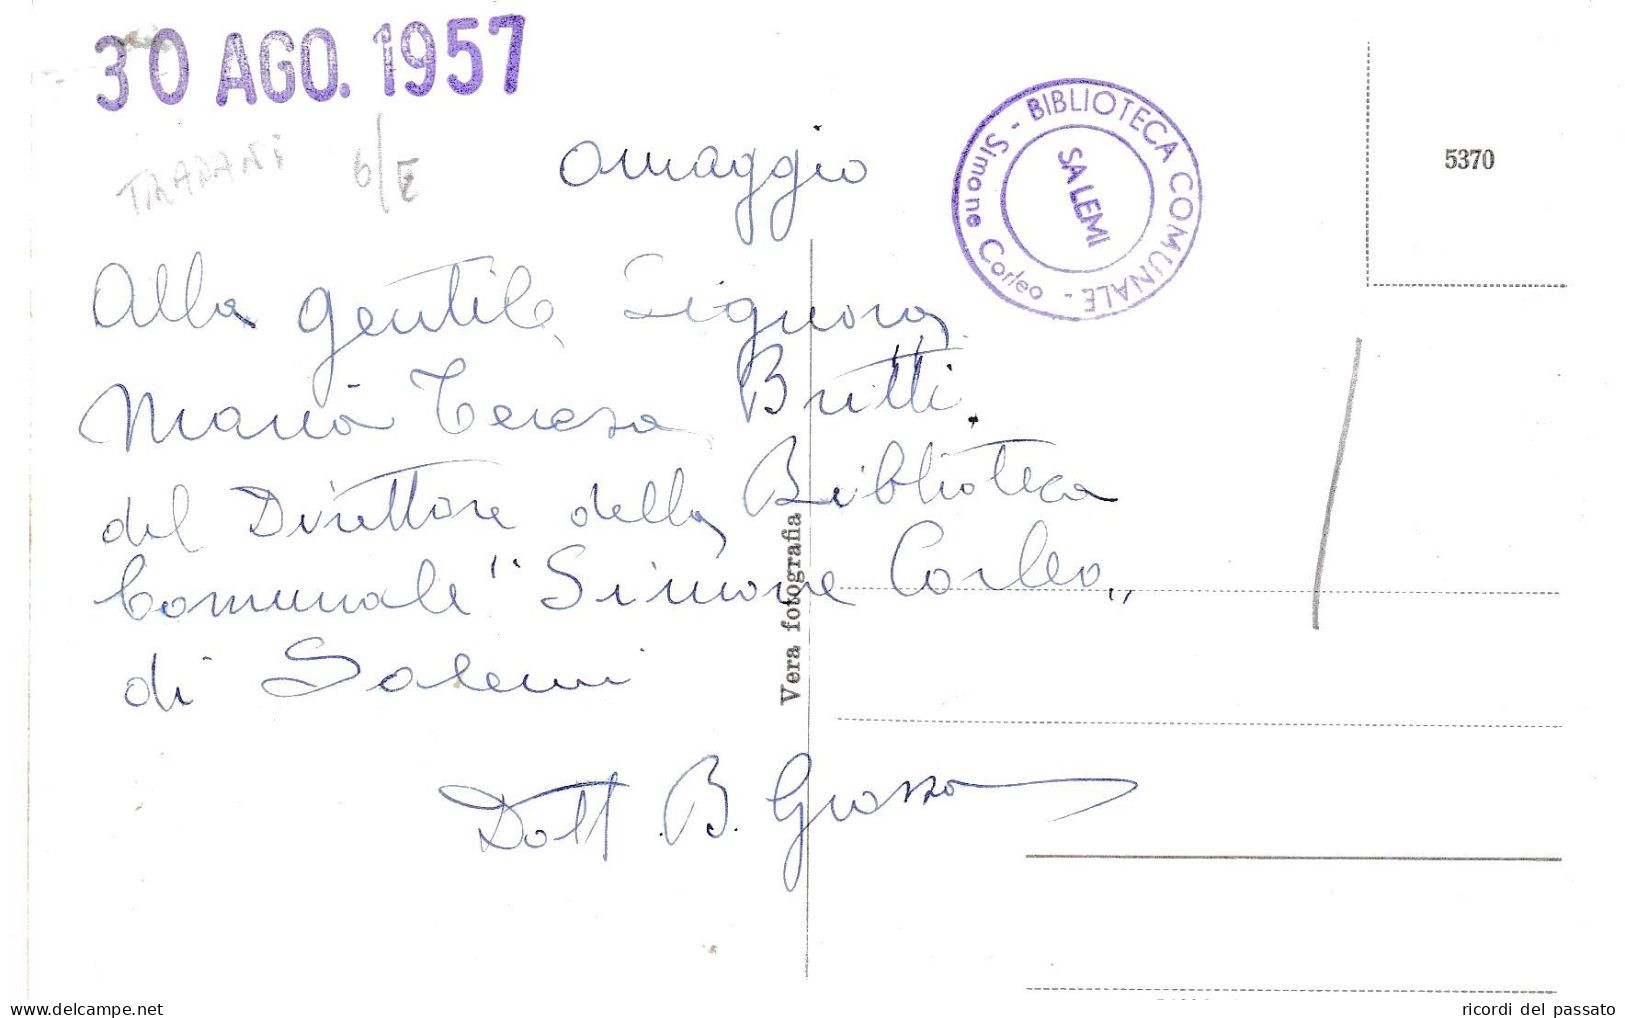 30 AGO. 1957
TRAPANI 6/E
omaggio
BIBLIOTECA COMUNALE - Simone Corleo -
SALEMI
5370
Alla gentile Signora
Maria Teresa Britti
del Direttore della Biblioteca
Comunale "Simone Corleo"
di Salemi
Dott. B. Grosso
Vera fotografia
delcampe.net
ricordi del passato